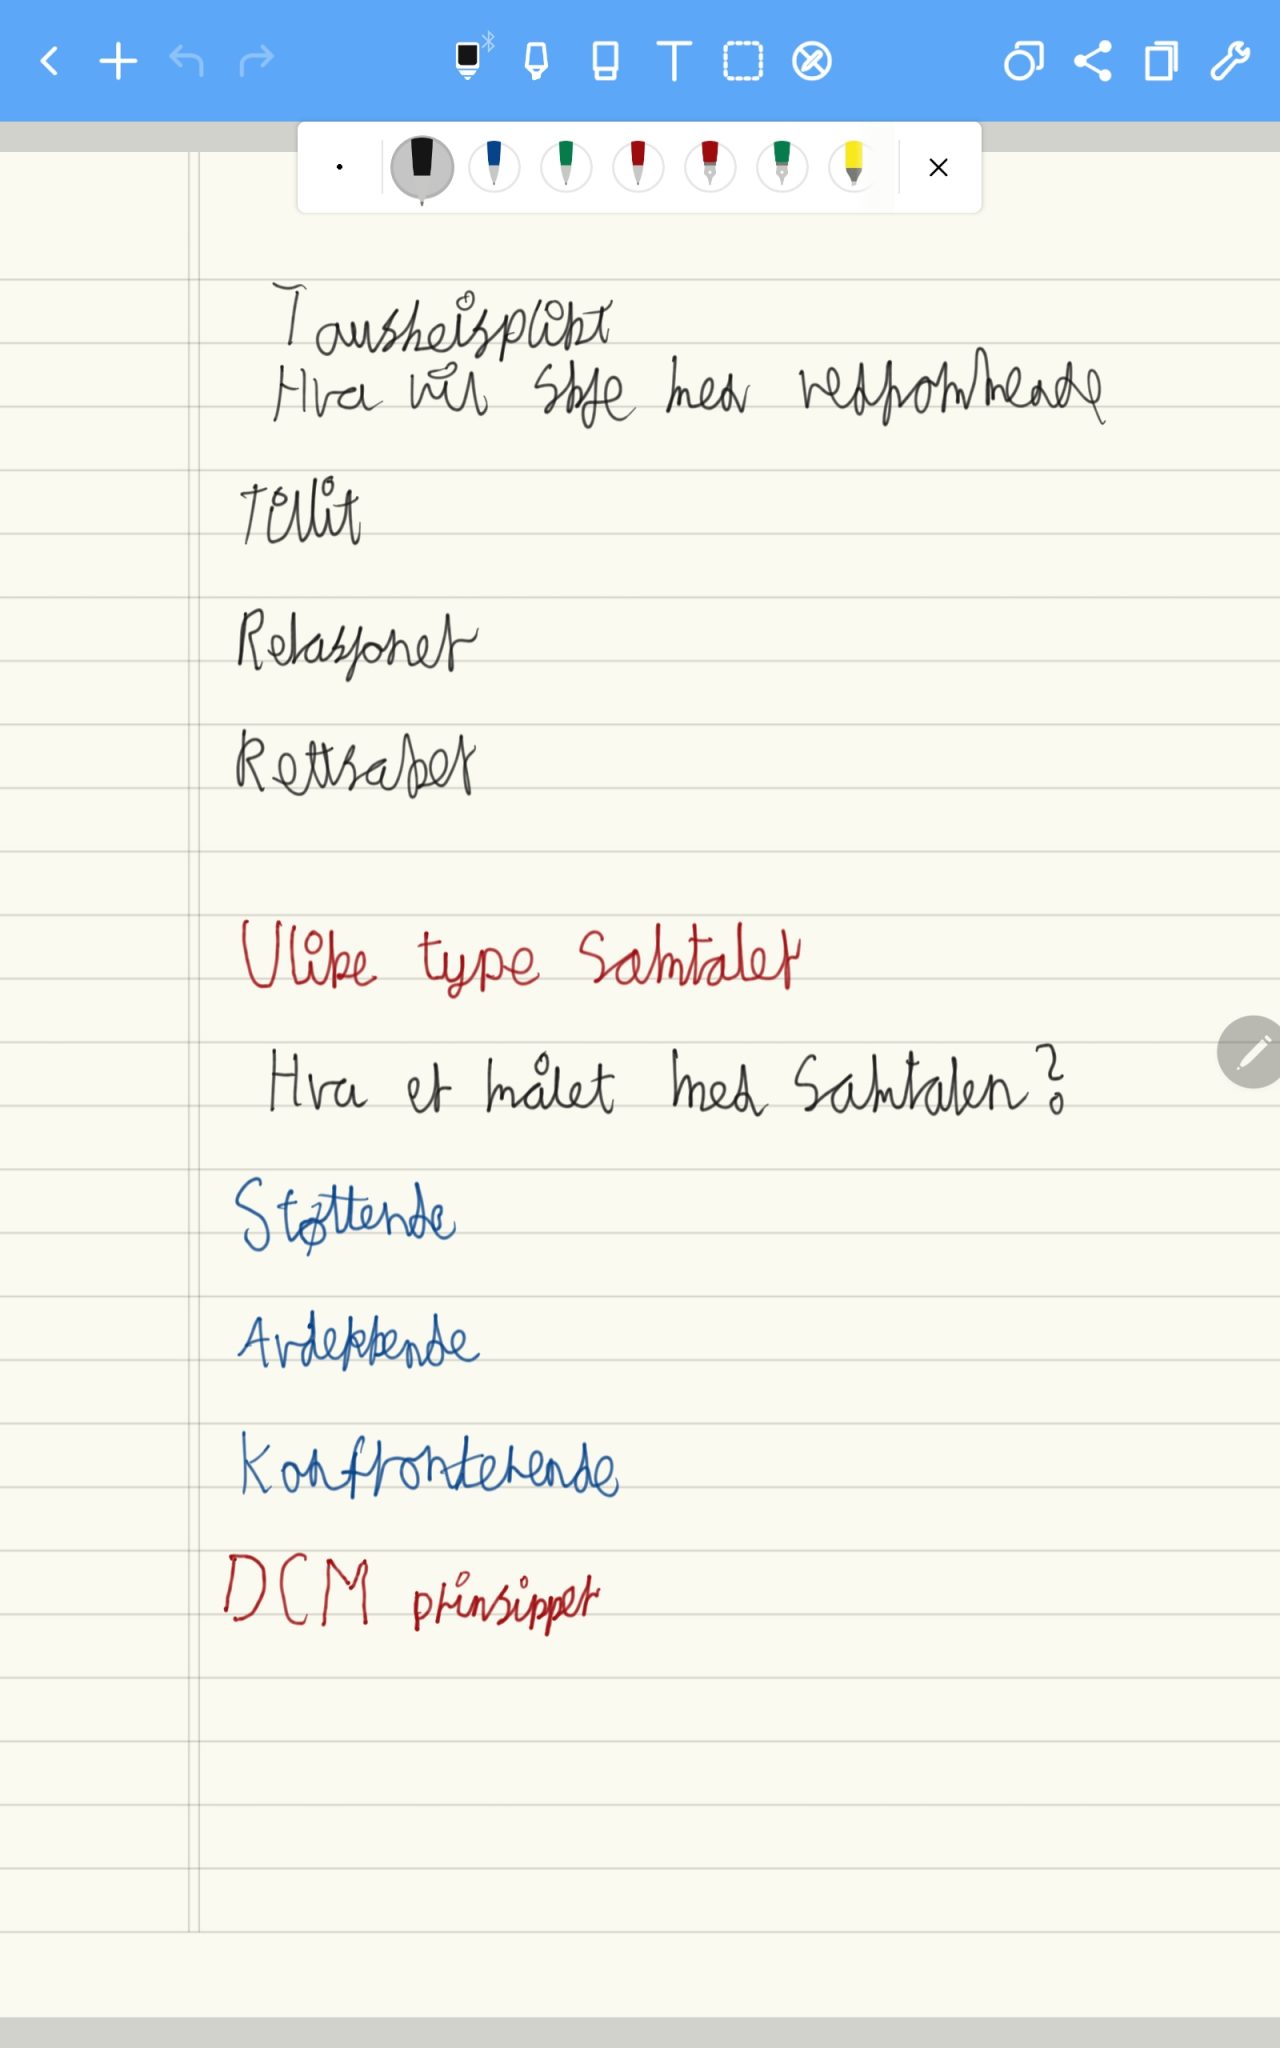 Tausheisplikt
Hva vil skje med vedkommende
Tillit
Relasjoner
Rettsaker
Ulike type Samtaler
Hva er målet med Samtalen?
Støttende
Avdekkende
Konfronterende
DCM prinsipper